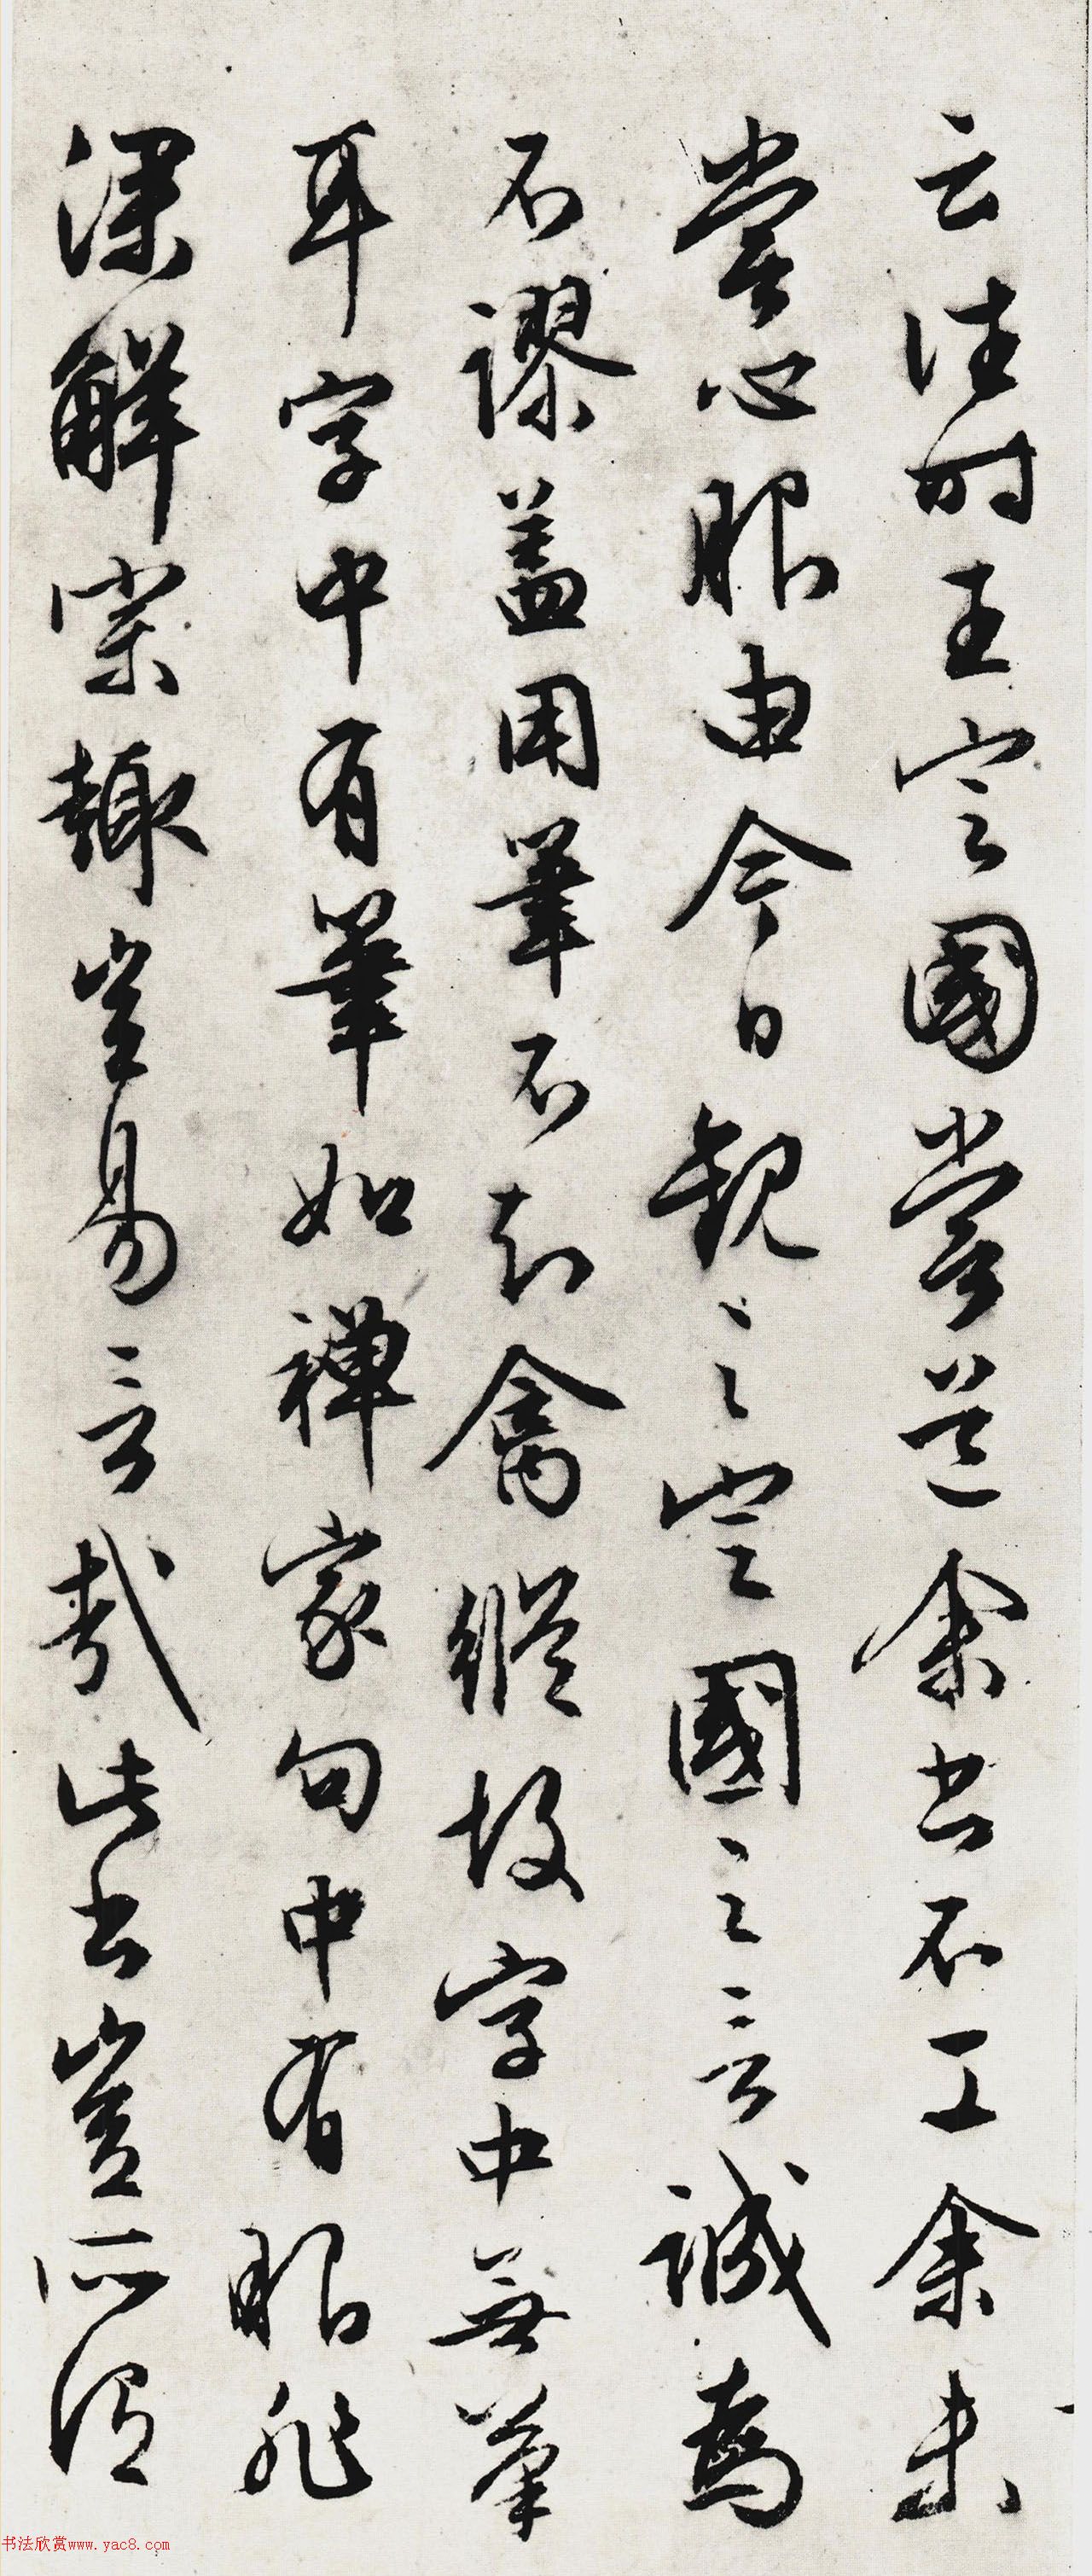 云往時王定國嘗道余書不工余未
嘗心服由今日觀之定國之言誠為
不謬蓋用筆不知禽縱故字中無筆
耳字中有筆如禪家句中有眼非
深解宗趣豈易言哉此書豈所謂
书法欣赏www.yac8.com